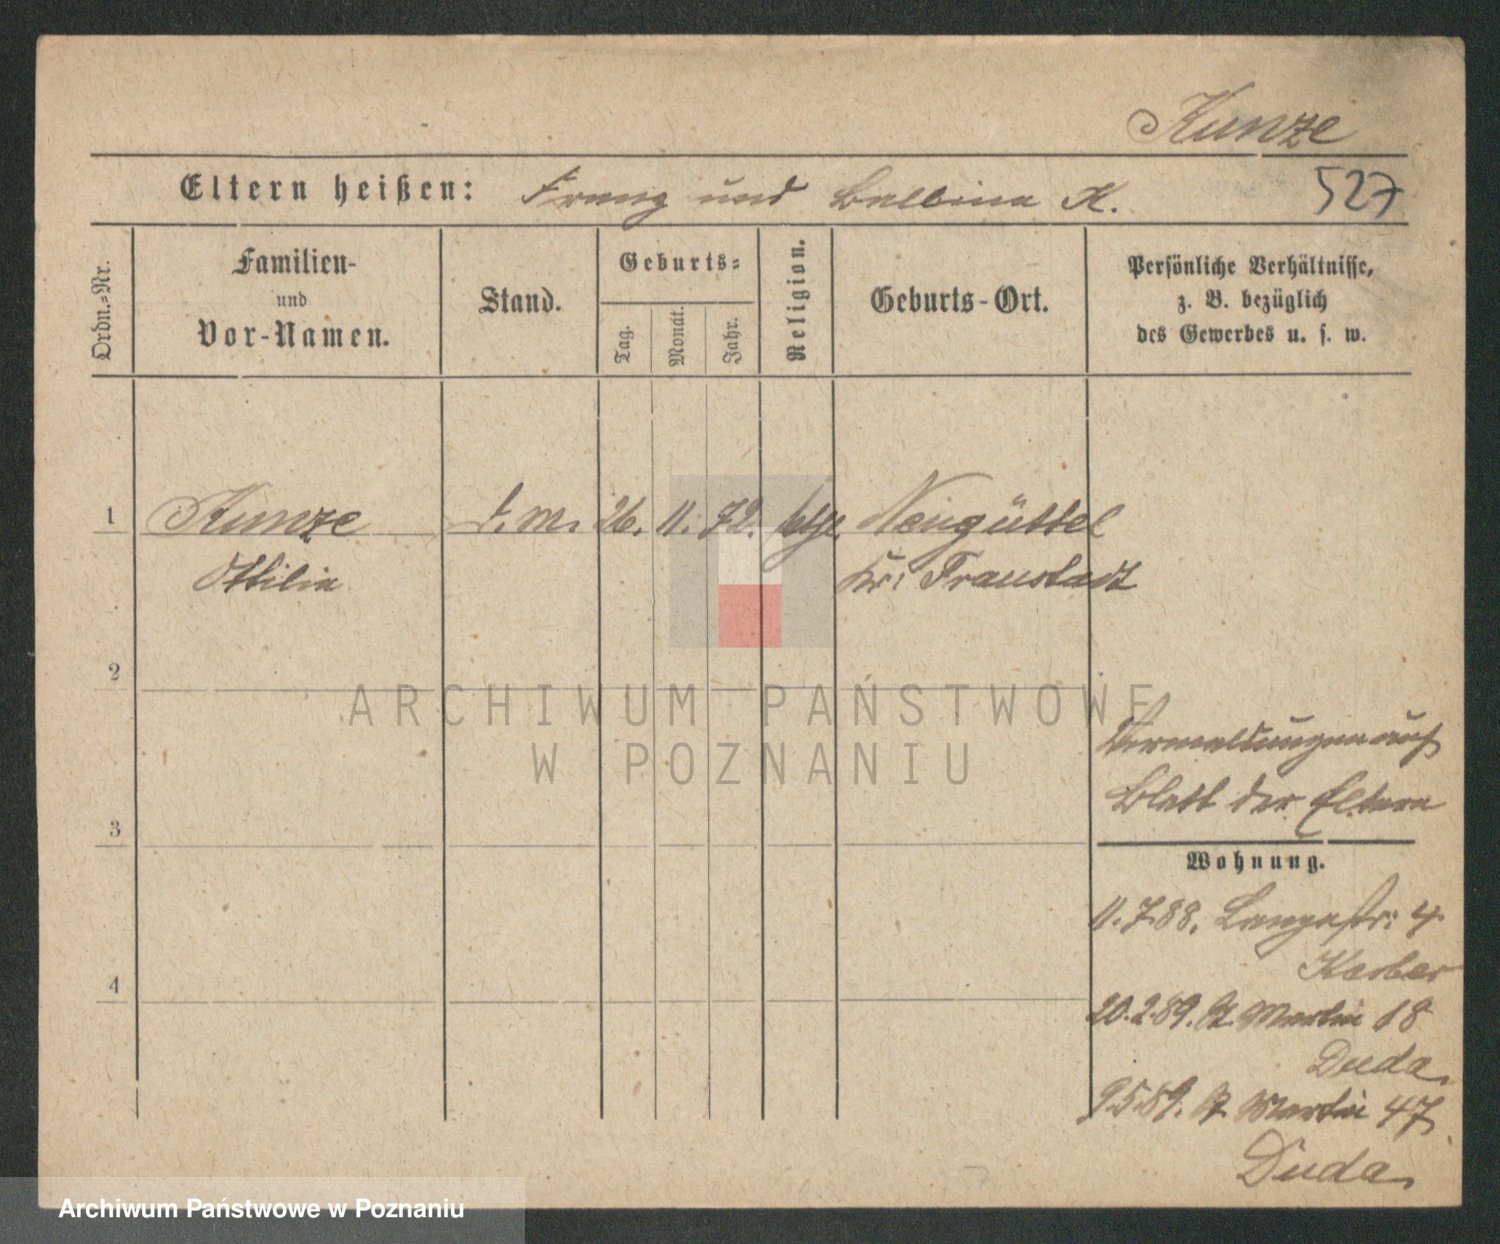 Kunze
Eltern heißen: Franz und Balbina K.
527
Ordn.-Nr.
Familien-
und
Vor-Namen.
Stand.
Geburts-
Tag.
Monat.
Jahr.
Religion.
Geburts-Ort.
Persönliche Verhältnisse,
z. B. bezüglich
des Gewerbes u. s. w.
1 Kunze 26. 11. 72. kath. Neugüttel
Ottilie Kr. Fraustadt
2
ARCHIWUM PAŃSTWOWE
W POZNANIU
Vermeldungen auf
Blatt der Eltern
3
Wohnung.
11.7.88. Langestr. 4.
4
20.2.89. St. Martin 18
Duda.
9.5.89. St. Martin 47
Duda.
Archiwum Państwowe w Poznaniu